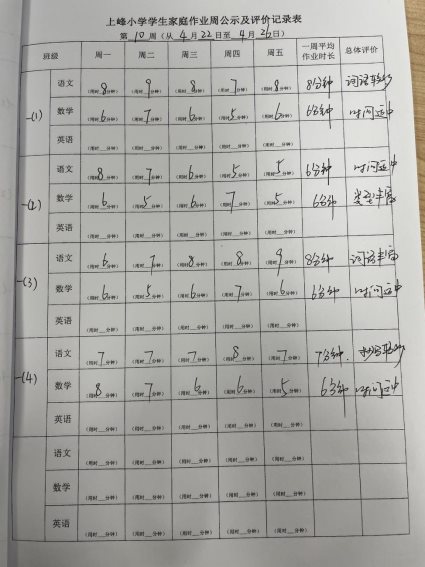 上峰小学学生家庭作业周公示及评价记录表
第 10 周（从 4 月 22 日至 4 月 26 日）
班级 周一 周二 周三 周四 周五 一周平均作业时长 总体评价
一(1) 语文 （用时 8 分钟） （用时 9 分钟） （用时 8 分钟） （用时 7 分钟） （用时 8 分钟） 8分钟 词语较多
数学 （用时 6 分钟） （用时 7 分钟） （用时 6 分钟） （用时 5 分钟） （用时 6 分钟） 6分钟 时间适中
英语 （用时___分钟） （用时___分钟） （用时___分钟） （用时___分钟） （用时___分钟）
一(2) 语文 （用时 8 分钟） （用时 7 分钟） （用时 6 分钟） （用时 5 分钟） （用时 5 分钟） 6分钟 时间适中
数学 （用时 6 分钟） （用时 5 分钟） （用时 6 分钟） （用时 7 分钟） （用时 5 分钟） 6分钟 类型丰富
英语 （用时___分钟） （用时___分钟） （用时___分钟） （用时___分钟） （用时___分钟）
一(3) 语文 （用时 6 分钟） （用时 7 分钟） （用时 8 分钟） （用时 8 分钟） （用时 9 分钟） 8分钟 词语丰富
数学 （用时 6 分钟） （用时 5 分钟） （用时 6 分钟） （用时 7 分钟） （用时 6 分钟） 6分钟 时间适中
英语 （用时___分钟） （用时___分钟） （用时___分钟） （用时___分钟） （用时___分钟）
一(4) 语文 （用时 7 分钟） （用时 7 分钟） （用时 7 分钟） （用时 8 分钟） （用时 7 分钟） 7分钟
数学 （用时 8 分钟） （用时 7 分钟） （用时 6 分钟） （用时 6 分钟） （用时 5 分钟） 6分钟 时间适中
英语 （用时___分钟） （用时___分钟） （用时___分钟） （用时___分钟） （用时___分钟）
语文 （用时___分钟） （用时___分钟） （用时___分钟） （用时___分钟） （用时___分钟）
数学 （用时___分钟） （用时___分钟） （用时___分钟） （用时___分钟） （用时___分钟）
英语 （用时___分钟） （用时___分钟） （用时___分钟） （用时___分钟） （用时___分钟）